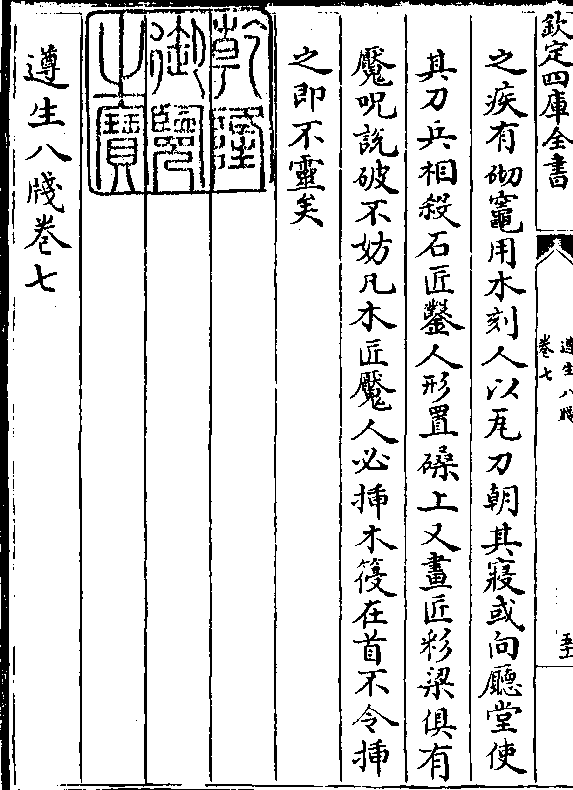 欽定四庫全書
遵生八牋
卷七
之疾有砌竈用木刻人以瓦刀朝其寢或向廳堂使
其刀兵相殺石匠鑿人形置磉上又畫匠彩梁俱有
魘呪説破不妨凡木匠魘人必揷木篗在首不令揷
之即不靈矣
乾隆
御覽
之寶
遵生八牋卷七